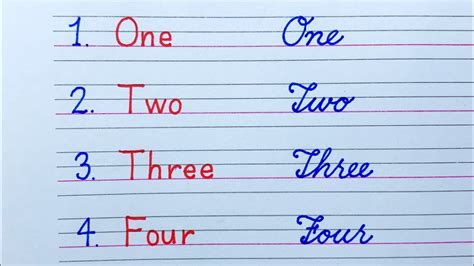 1. One One
2. Two Two
3. Three Three
4. Four Four